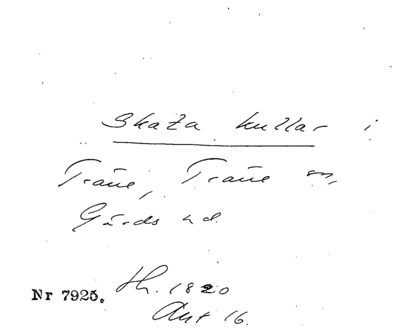 Skata kullar i
Träne, Träne sn,
Gärds hd.
Sk. 1820
Ant 16.
Nr 7925.